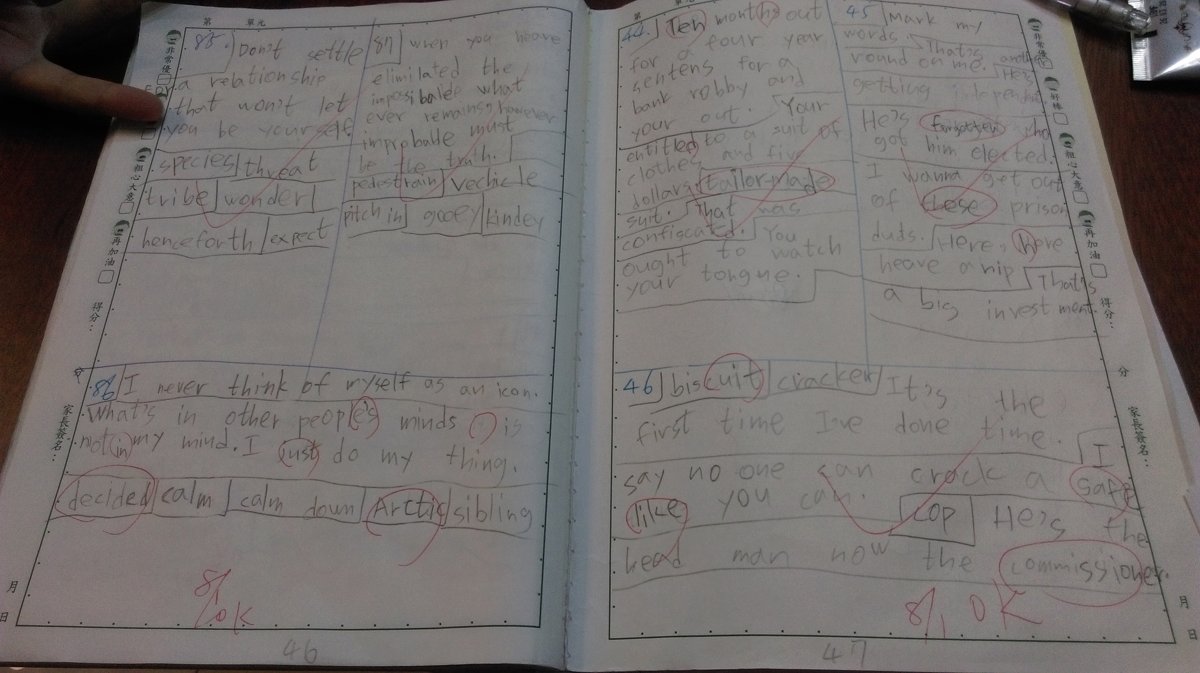 第 單元
85. Don't settle
for a relationship
that won't let
you be yourself
species threat
tribe wonder
henceforth expect
87 when you heave
elimilated the
impossibale what
ever remains, however
improbable must
be the truth.
pedestrain vechicle
pitch in gooey kindey
86 I never think of myself as an icon.
What's in other people's minds is
not in my mind. I just do my thing.
decided calm calm down Arctic sibling
8/1 OK
46
非常優
粗心大意
再加油
得分:
家長簽名:
月
日
第 單元
44. Ten months out
for a four year
sentens for a
bank robby and
your out. Your
entitled to a suit of
clothes and five
dollars. tailor-made
suit. That was
confiscated. You
ought to watch
your tongue.
45 Mark my
words. That's another
round on me. He's
getting independent
He's forgotten who
got him elected.
I wanna get out
of these prison
duds. Here, here
heave a nip That's
a big investment.
46 biscuit cracker It's the
first time I've done time. I
say no one can crack a safe
like you can. cop He's the
head man now the commissioner.
8/1 OK
47
非常優
好棒
粗心大意
再加油
得分:
家長簽名:
月
日